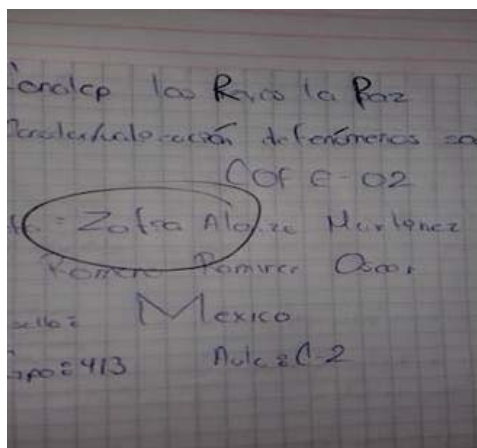 Conalep los Reyes la Paz
de fenómenos
COFE-02
Zofra Alonzo Martinez
Romero Ramirez Oscar
Mexico
Grupo: 413 Aula: C-2